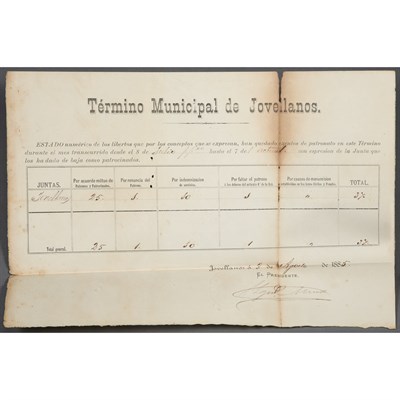 Término Municipal de Jovellanos.
ESTADO numérico de los libertos que por los conceptos que se expresan, han quedado exentos de patronato en este Término
durante el mes transcurrido desde el 8 de Julio hasta el 7 de con expresion de la Junta que
les ha dado de baja como patrocinados.
JUNTAS. Por acuerdo mútuo de Patronos y Patrocinados. Por renuncia del Patrono. Por indemnizacion de servicios. Por faltar el patrono á los deberes del artículo 4º de la Ley. Por causas de TOTAL.
Jovellanos 25 1 10 1 " 37
Total general 25 1 10 1 " 37
Jovellanos 8 de Agosto de 1885
EL PRESIDENTE